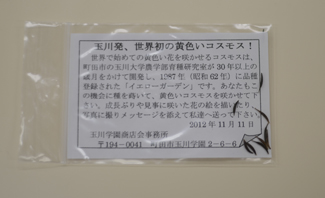 玉川発、世界初の黄色いコスモス！
世界で始めての黄色い花を咲かせるコスモスは、
町田市の玉川大学農学部育種研究室が30年以上の
歳月をかけて開発し、1987年（昭和62年）に品種
登録された「イエローガーデン」です。あなたもこ
の機会に種を蒔いて、黄色いコスモスを咲かせて下
さい。成長ぶりや見事に咲いた花の絵を描いたり、
写真に撮りメッセージを添えて私達へ送って下さい。
2012年11月11日
玉川学園商店会事務所
〒194-0041 町田市玉川学園2-6-6